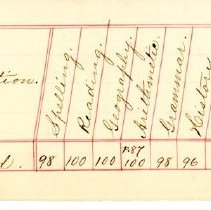 tion. Spelling. Reading. Geography. Arithmetic. Grammar. History
d. 98 100 100 100 98 96